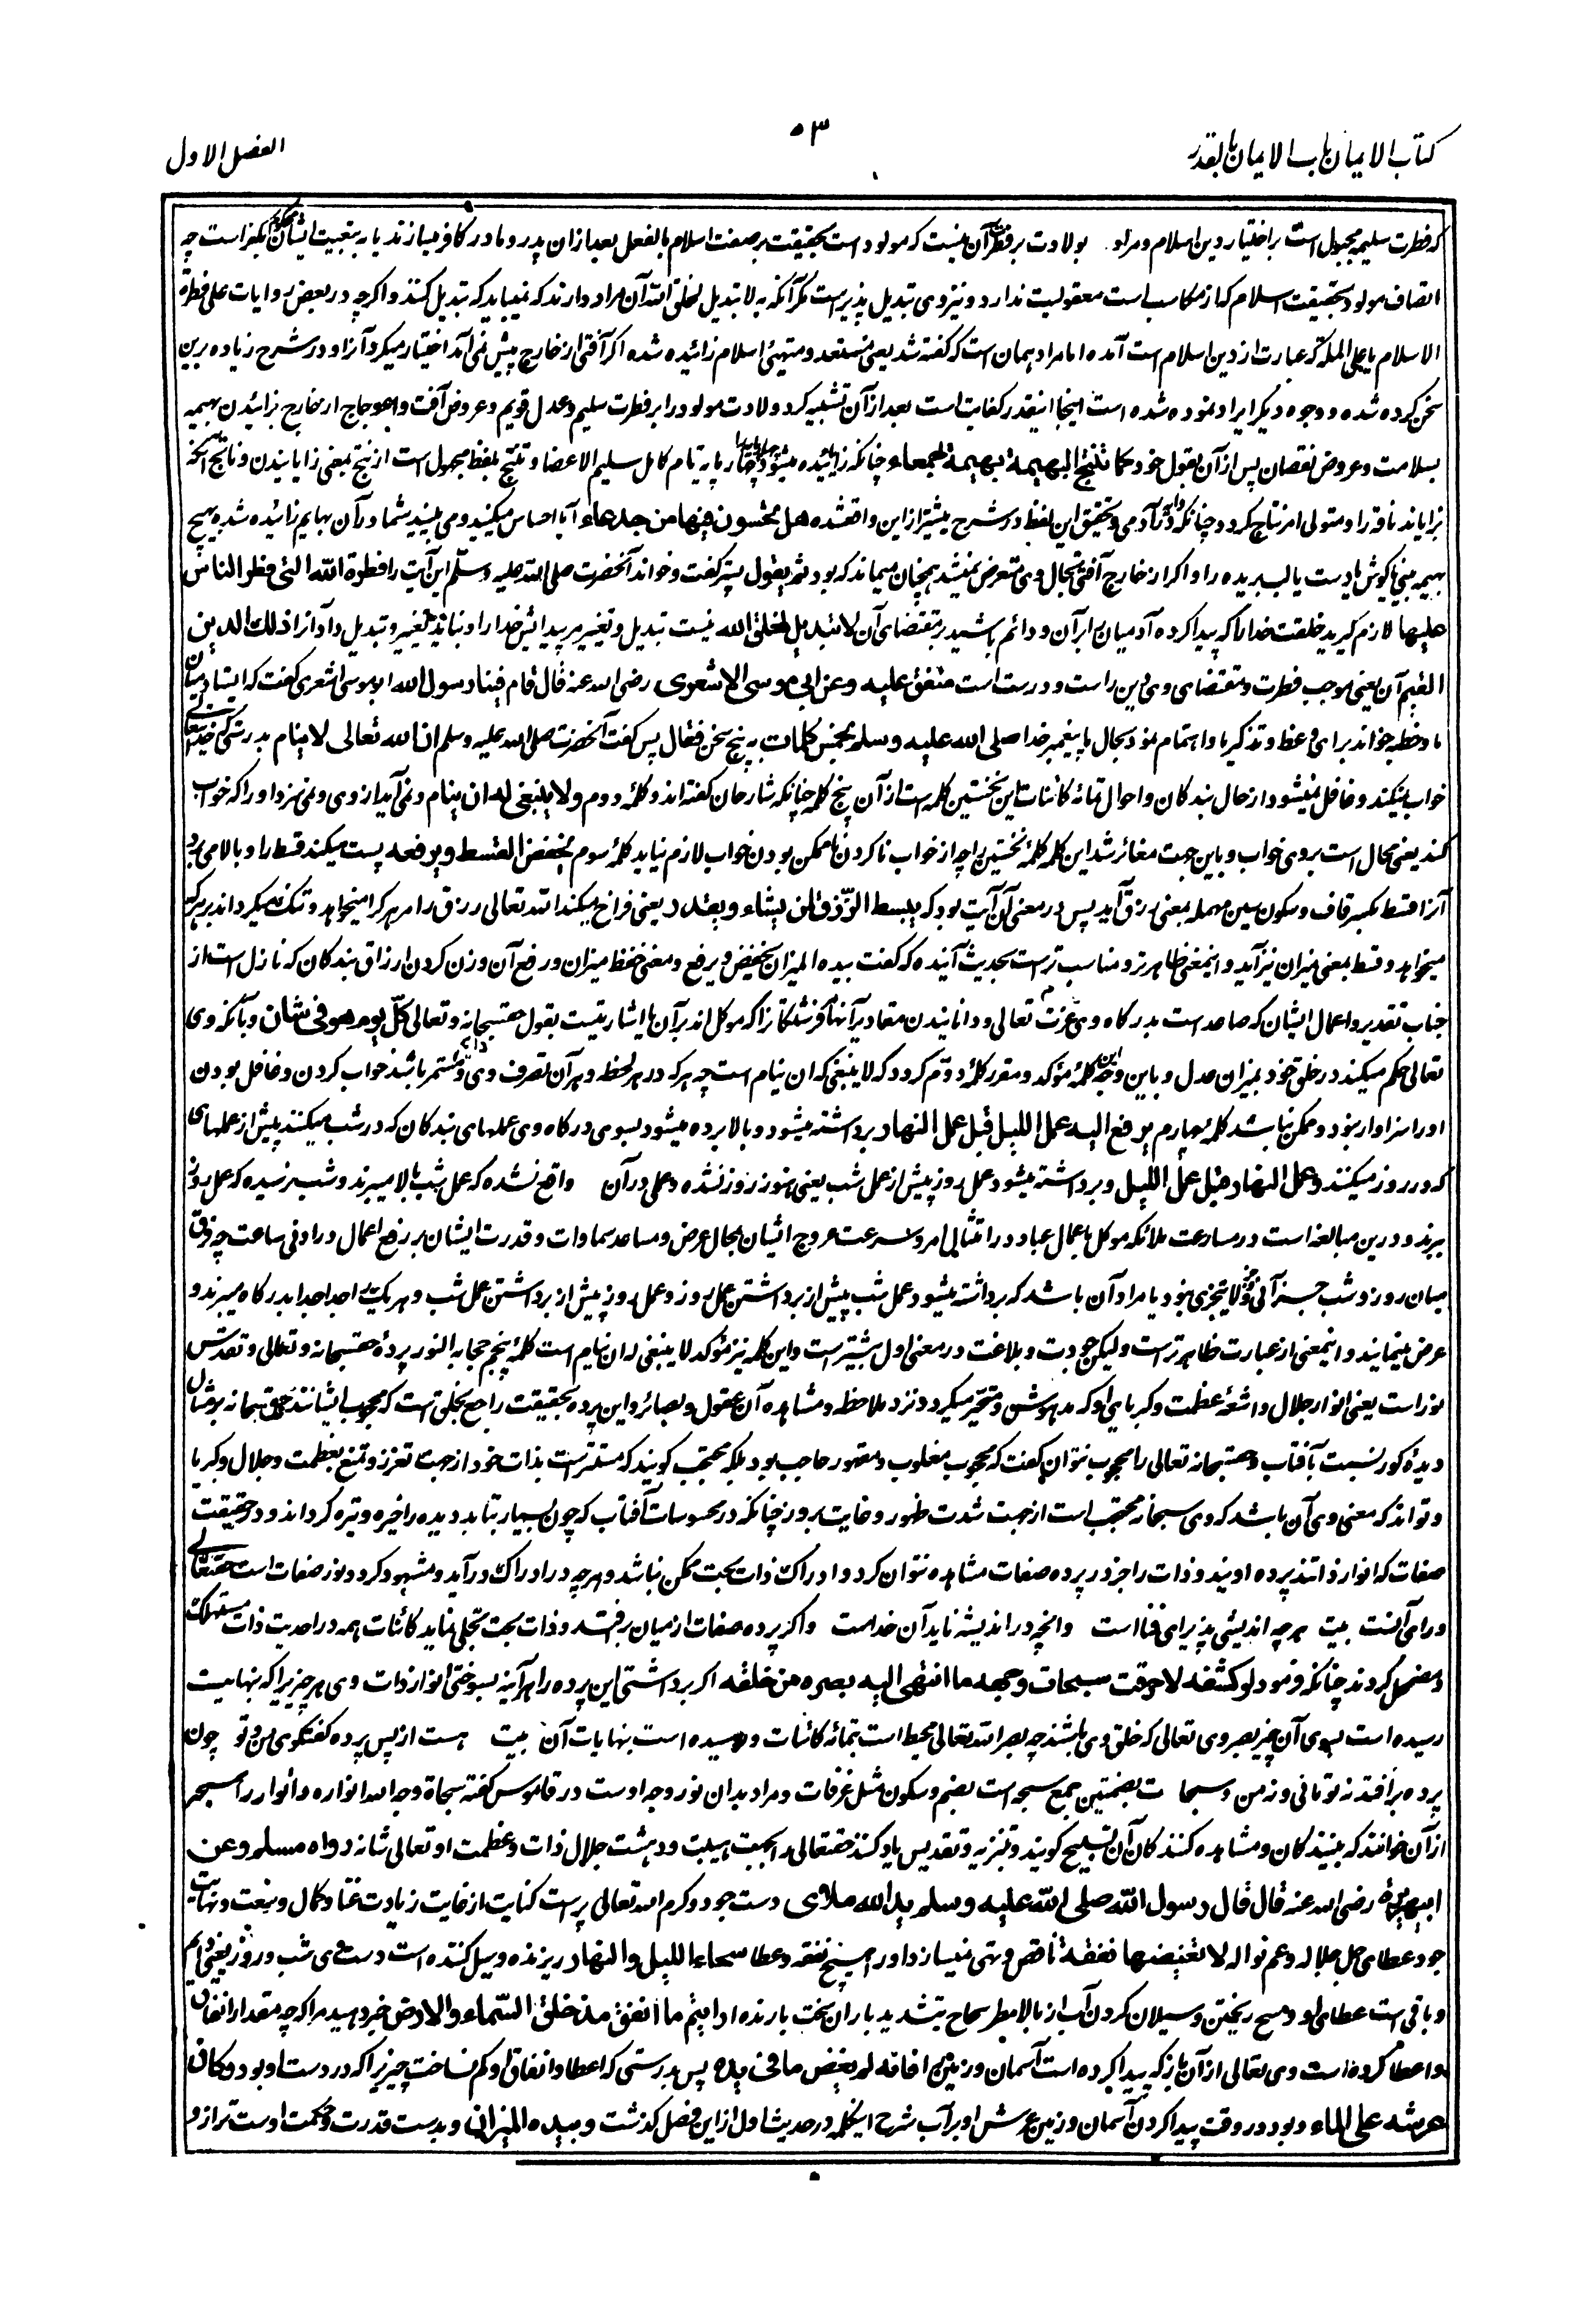 کتاب الایمان باب الایمان بالقدر
۵۳
الفصل الاول
که فطرت سلیمه مجبول است بر اختیار دین اسلام و مراد بولادت بر فطرت آن نیست که مولود است بحقیقت بر صفت اسلام بالفعل بعد ازان پدر و مادر کافر میسازند یا به تبعیت ایشان محکوم بکفر است چه
اتصاف مولود بحقیقت اسلام که از مکاسب است معقولیت ندارد و نیز وی تبدیل پذیر است مگر آنکه به لا تبدیل لخلق الله آن مراد دارند که نمیباید که تبدیل کنند و اگرچه در بعض روایات علی فطرة
الاسلام یا علی الملة که عبارت از دین اسلام است آمده اما مراد همان است که گفته شد یعنی مستعد و متهیئ اسلام زائیده شده اگر آفتی از خارج پیش نمی آمد اختیار میکرد آنرا و در شرح زیاده برین
سخن کرده شده و وجوه دیگر ایراد نموده شده است اینجا اینقدر کفایت است بعد ازان تشبیه کرد ولادت مولود را بر فطرت سلیم و عدل قویم و عروض آفت و اعوجاج از خارج بزائیدن بهیمه
بسلامت و عروض نقصان پس از آن بقول خود کما تنتج البهیمة بهیمة جمعاء چنانکه زائیده میشود چهارپایه تمام کامل سلیم الاعضا و تنتج بلفظ مجهول است از نتج بمعنی زایانیدن و ناتج آنکه
بزایاند ناقه را و متولی امر نتاج گردد چنانکه دایه آدمی و تحقیق این لفظ در شرح بیشتر ازین واقعشده هل تحسون فیها من جدعاء آیا احساس میکنید و می بینید شما در آن بهایم زائیده شده هیچ
بهیمه بینی یا گوش یا دست یا لب بریده را و اگر از خارج آفتی بحال وی متعرض نمیشد همچنان میماند که بود ثم یقول پستر گفت و خواند آنحضرت صلی الله علیه وسلم این آیت را فطرة الله التی فطر الناس
علیها لازم گیرید خلقت خدا را که پیدا کرده آدمیان را بر آن و دائم باشید بر مقتضای آن لا تبدیل لخلق الله نیست تبدیل و تغییر مر پیدائش خدا را و نباید تغییر و تبدیل داد آنرا ذلك الدین
القیم آن یعنی موجب فطرت و مقتضای وی دین راست و درست است متفق علیه وعن ابی موسی الاشعری رضی الله عنه قال قام فینا رسول الله ابو موسی اشعری گفت که ایستاد میان
ما و خطبه خواند برای وعظ و تذکیر ما و اهتمام نمود بحال ما پیغمبر خدا صلی الله علیه وسلم بخمس کلمات به پنج سخن فقال پس گفت آنحضرت صلی الله علیه وسلم ان الله تعالی لا ینام بدرستی که خدایتعالی
خواب نمیکند و غافل نمیشود از حال بندگان و احوال تمامه کائنات این نخستین کلمه است از آن پنج کلمه چنانکه شارحان گفته اند و کلمه دوم ولا ینبغی له ان ینام و نمی آید از وی و نمی سزد او را که خواب
کند یعنی محال است بر وی خواب و باین جهت مغائر شد این کلمه کلمه نخستین را چه از خواب ناکردن ناممکن بودن خواب لازم نیاید کلمه سوم یخفض القسط ویرفعه پست میکند قسط را و بالا می برد
آنرا قسط بکسر قاف و سکون سین مهمله بمعنی رزق آید پس در معنی آن آیت بود که یبسط الرزق لمن یشاء ویقدر یعنی فراخ میکند الله تعالی رزق را مر هر کرا میخواهد و تنگ میگرداند بر هر که
میخواهد و قسط بمعنی میزان نیز آید و اینمعنی ظاهرتر و مناسب تر است بحدیث آینده که گفت بیده المیزان یخفض و یرفع و معنی خفض میزان و رفع آن وزن کردن ارزاق بندگان که نازل است از
جناب تقدیر و اعمال ایشان که صاعد است بدرگاه وی عزت تعالی و دانانیدن مقادیر آنها مر فرشتگانرا که موکل اند بر آن یا اشارتیست بقول حق سبحانه و تعالی کل یوم هو فی شان و بآنکه وی
تعالی حکم میکند در خلق خود بمیزان عدل و باین وجه این کلمه مؤکد و مقرر کلمه دوم گردد که لا ینبغی له ان ینام است چه هر که در هر لحظه و هر آن تصرف وی دائم و مستمر باشد خواب کردن و غافل بودن
او را سزاوار نبود و ممکن نباشد کلمه چهارم یرفع الیه عمل اللیل قبل عمل النهار برداشته میشود و بالا برده میشود بسوی درگاه وی عملهای بندگان که در شب میکنند پیش از عملهای
که در روز میکنند وعمل النهار قبل عمل اللیل و برداشته میشود عمل روز پیش از عمل شب یعنی هنوز روز نشده و عملی در آن واقع نشده که عمل شب بالا میبرند و شب نرسیده که عمل روز
ببرند و درین مبالغه است در مسارعت ملائکه موکل باعمال عباد در امتثال امر و سرعت عروج ایشان بمحال عرض و مساعد سماوات و قدرت ایشان بر رفع اعمال در ادنی ساعت چه فرق
میان روز و شب جز آنی و جزو لا یتجزی نبود یا مراد آن باشد که برداشته میشود عمل شب پیش از برداشتن عمل روز و عمل روز پیش از برداشتن عمل شب و هر یک را جدا جدا بدرگاه میبرند و
عرض مینمایند و اینمعنی از عبارت ظاهرتر است و لیکن جودت و بلاغت در معنی اول بیشتر است و این کلمه نیز مؤکد لا ینبغی له ان ینام است کلمه پنجم حجابه النور پرده حق سبحانه و تعالی و تقدس
نور است یعنی انوار جلال و اشعه عظمت و کبریای او که مدهوش و متحیر میگردد نزد ملاحظه و مشاهده آن عقول و بصائر و این پرده بحقیقت راجع بخلق است که محجوب ایشانند حق سبحانه بر مثال
دیده کور نسبت بآفتاب و حق سبحانه تعالی را محجوب نتوان گفت که محجوب مغلوب و مقهور حاجب بود بلکه محتجب گویند که مستتر است بذات خود از جهت تعزز و تمنع بعظمت و جلال و کبریا
و تواند که معنی وی آن باشد که وی سبحانه محتجب است از جهت شدت ظهور و غایت بروز چنانکه در محسوسات آفتاب که چون بسیار بتابد دیده را خیره و تیره گرداند و در حقیقت
صفات که انوار ذاتند پرده اویند و ذات را جز در پرده صفات مشاهده نتوان کرد و ادراک ذات بحت ممکن نباشد و هرچه در ادراک درآید و مشهود گردد نور صفات است حقتعالی
ورای آنست بیت هرچه اندیشی پذیرای فنا است وانچه در اندیشه ناید آن خداست و اگر پرده صفات از میان برافتد و ذات بحت تجلی نماید کائنات همه در احدیت ذات مستهلک
و مضمحل گردند چنانکه فرمود لو کشفه لاحرقت سبحات وجهه ما انتهی الیه بصره من خلقه اگر برداشتی این پرده را هر آئینه بسوختی انوار ذات وی هر چیزی را که بنهایت
رسیده است بسوی آن چیز بصر وی تعالی که خلق وی باشند چه بصر الله تعالی محیط است بتمامه کائنات و رسیده است بنهایات آن بیت هست از پس پرده گفتگوی من و تو چون
پرده برافتد نه تو مانی و نه من و سبحات بضمتین جمع سبحه است بضم و سکون مثل غرفات و مراد بدان نور وجه اوست در قاموس گفته سبحات وجه الله انواره و انوار را سبحه
از آن خوانند که بینندگان و مشاهده کنندگان آن تسبیح گویند و تنزیه و تقدیس یاد کنند حقتعالی را بجهت هیبت و دهشت جلال ذات و عظمت او تعالی شانه رواه مسلم وعن
ابی هریرة رضی الله عنه قال قال رسول الله صلی الله علیه وسلم ید الله ملای دست جود و کرم الله تعالی پر است کنایت از غایت زیادت غنا و کمال و سعت و نهایت
جود عطای جل جلاله و عم نواله لا تغیضها نفقة ناقص و تهی نمیسازد او را هیچ نفقه و عطا سحاء اللیل والنهار ریزنده و سیل کننده است دست وی شب و روز یعنی دایم
و باقی است عطای او و سح ریختن و سیلان کردن آب از بالا مطر سحاح بتشدید باران سخت بارنده ارایتم ما انفق مذ خلق السماء والارض خبر دهید مرا که چه مقدار انفاق
و اعطا کرده است وی تعالی از آن باز که پیدا کرده است آسمان و زمین را فانه لم یغض ما فی یده پس بدرستی که اعطا و انفاق او کم نساخت چیزی را که در دست او بود وکان
عرشه علی الماء و بود در وقت پیدا کردن آسمان و زمین عرش او بر آب شرح این کلمه در حدیث اول از این فصل گذشت وبیده المیزان و بدست قدرت و حکمت اوست ترازو